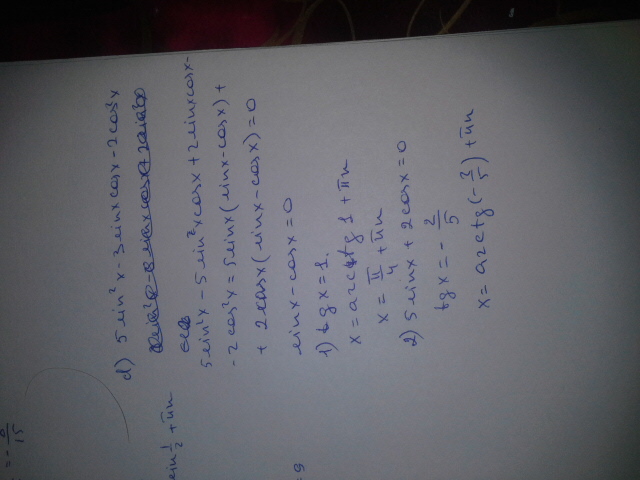 d) 5sin²x - 3sinxcosx - 2cos²x
5sin²x - 5sin²xcosx + 2sinxcosx -
- 2cos²x = 5sinx(sinx-cosx) +
+ 2cosx(sinx-cosx) = 0
sinx - cosx = 0
1) tgx = 1.
x = arcctg 1 + πn
x = π/4 + πn
2) 5sinx + 2cosx = 0
tgx = - 2/5
x = arctg(- 2/5) + πn
= - 8/15
sin 1/2 + πn
= 9